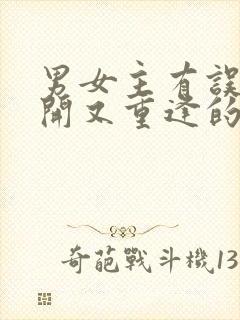 男女主有誤
開又重逢的
奇葩戰斗機13